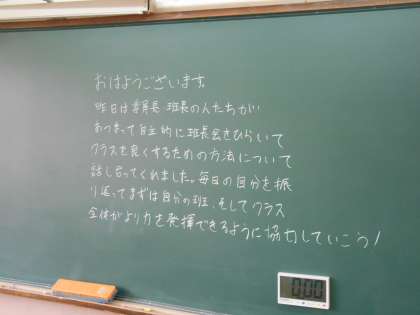 おはようございます。
昨日は委員長 班長の人たちが
あつまって自主的に班長会をひらいて
クラスを良くするための方法について
話し合ってくれました。毎日の自分を振
り返ってまずは自分の班、そしてクラス
全体がより力を発揮できるように協力していこう!
0:00